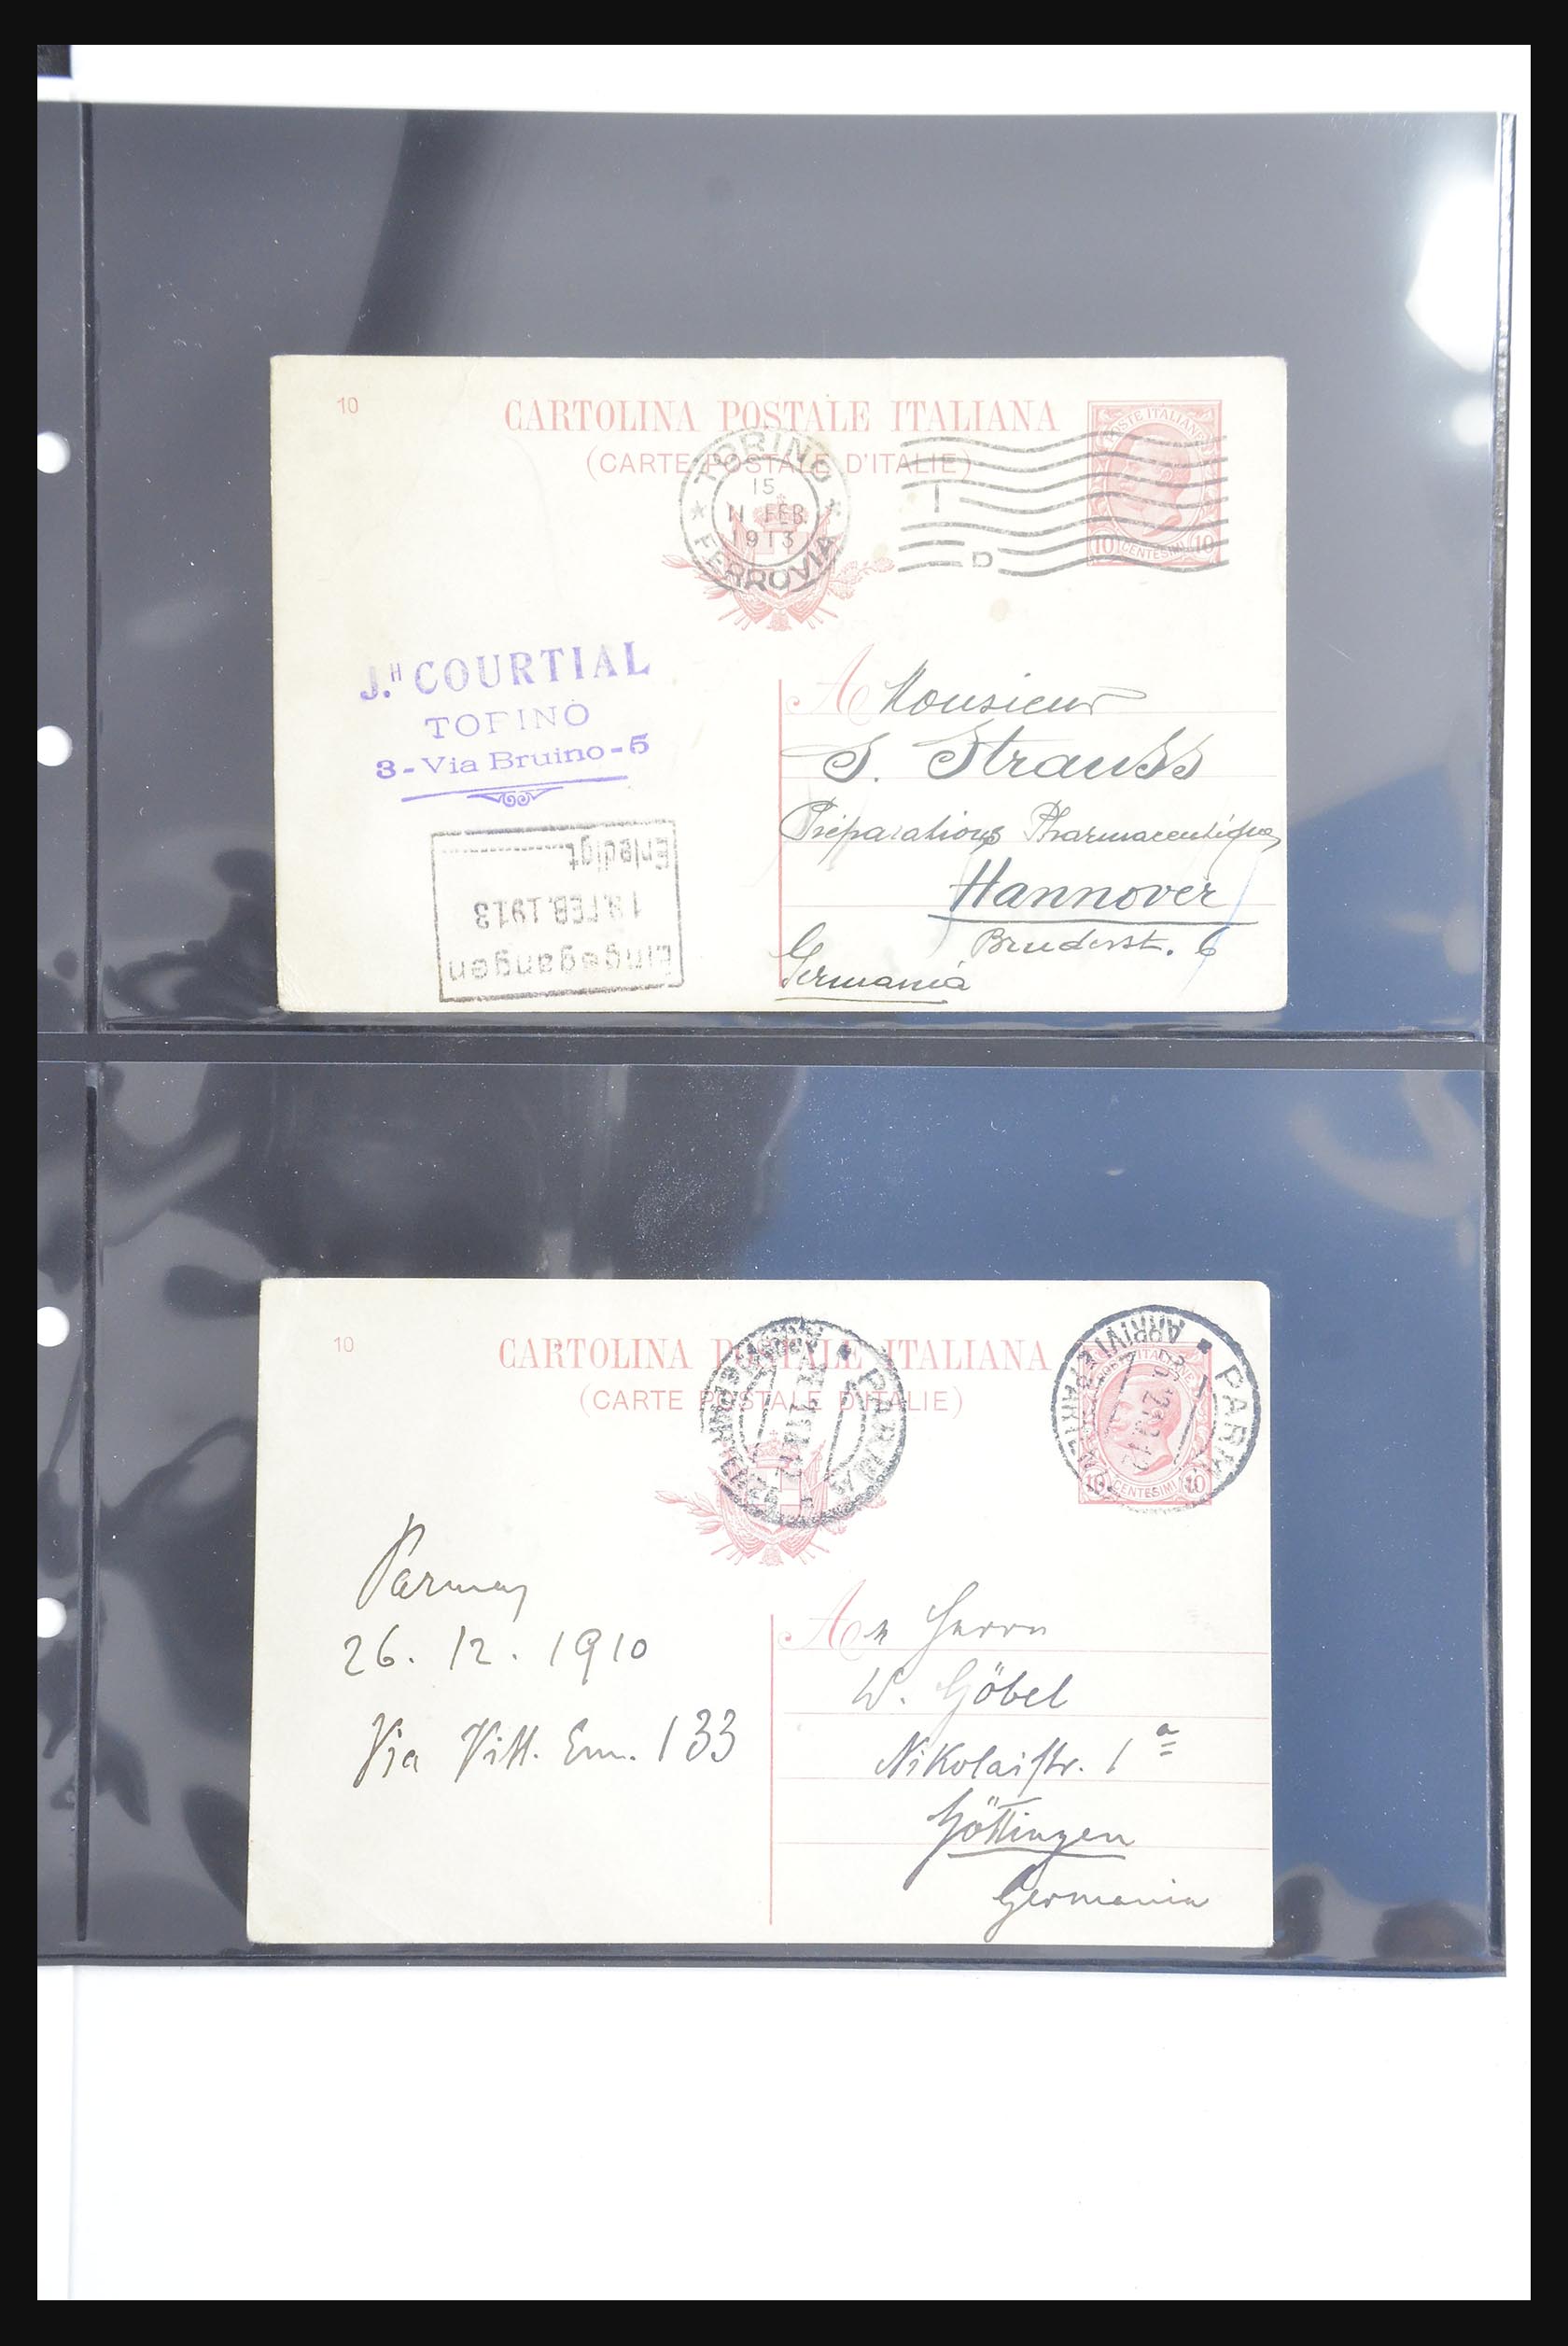 10
CARTOLINA POSTALE ITALIANA
(CARTE POSTALE D'ITALIE)
POSTE ITALIANE
10 CENTESIMI 10
TORINO
15
11 FEB
1913
FERROVIA
I
D
J.H COURTIAL
TORINO
3-Via Bruino-5
Eingegangen
FEB.1913
Erledigt
A Monsieur
S. Strauss
Préparations Pharmaceutiques
Hannover
Bruderst. 6
Germania
10
CARTOLINA POSTALE ITALIANA
(CARTE POSTALE D'ITALIE)
PARMA
PARMA
ARRIVI E PARTENZE
10 CENTESIMI 10
Parma
26. 12. 1910
Via Vitt. Em. 133
An Herrn
W. Göbel
Nikolaistr. 1a
Göttingen
Germania